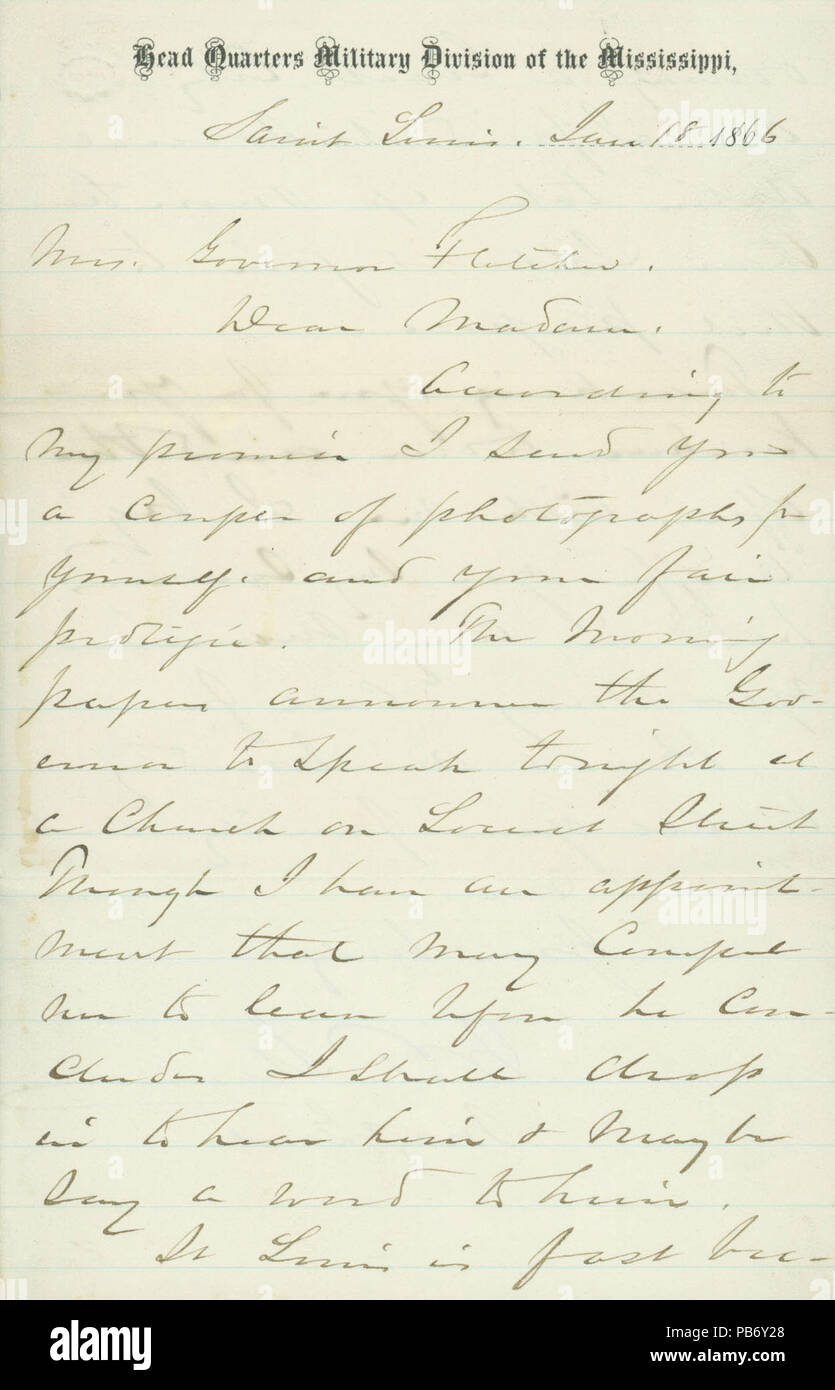 Head Quarters Military Division of the Mississippi,
Saint Louis. Jan 18 1866
Mrs. Governor Fletcher.
Dear Madam.
According to
my promise I send you
a couple of photographs for
yourself. and your fair
protegie. The Morning
papers announce the Gov-
ernor to speak tonight at
a Church on Locust Street
Though I have an appoint-
ment that may compel
me to leave before he con-
cludes I shall drop
in to hear him & maybe
say a word to him.
St Louis is fast bec-
alamy
alamy
Image ID: PB6Y28
www.alamy.com